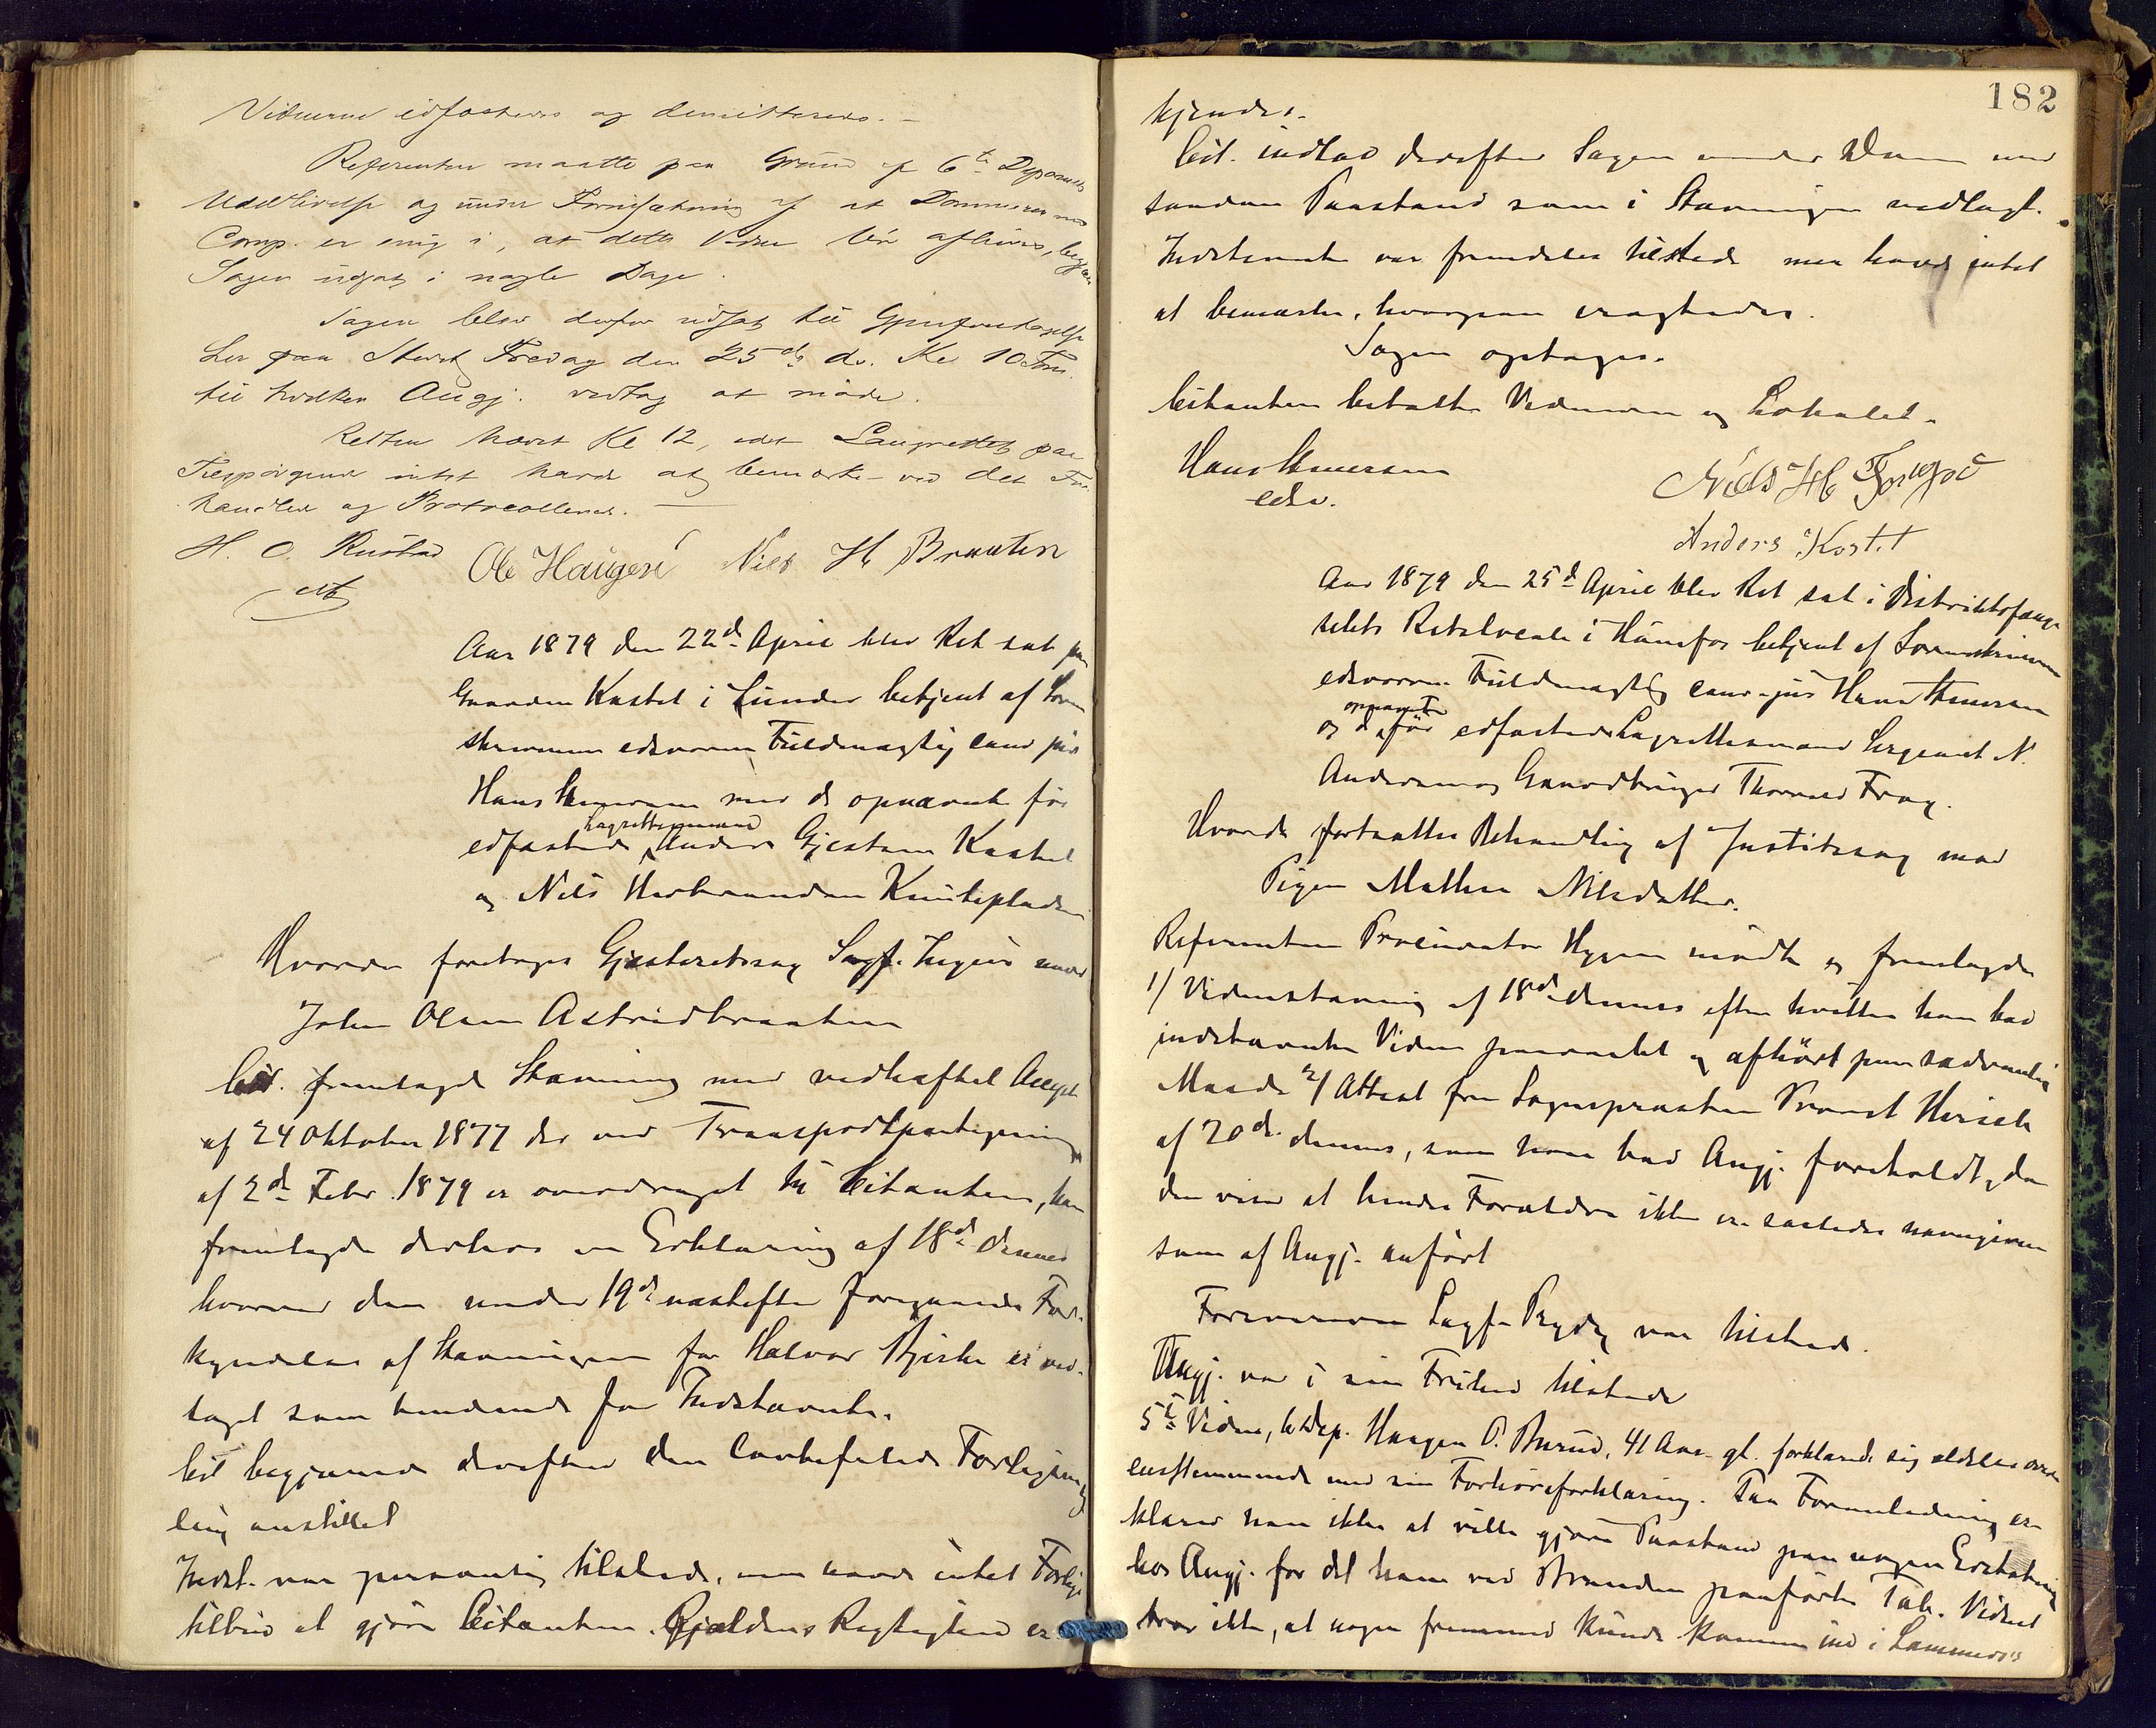 Vidnerne edfæstedes og demitteredes. –
Referenten maatte paa Grund af 6te Deponents
Udeblivelse og under Forudsætning af at Dommeren med
Comp. er enig i, at dette Vidne bør afhøres, begjære
Sagen udsat i nogle Dage.
Sagen blev derfor udsat til Gjenforetagelse
her paa Stedet Fredag den 25de ds. Kl 10 Form.
til hvilken Angj. vedtog at møde.
Retten hævet Kl 12, idet Laugrettet paa
Tilspørgende intet havde at bemærke ved det For-
handlede og Protocollerede. —
H. O. Rustad
Ole Haugen Niels H. Braaten
Aar 1879 den 22de April blev Ret sat paa
Gaarden Kastet i Lunder betjent af Soren-
skriverens edsvorne Fuldmægtig cand jur
Hans Thueraas med de opnævnte før
lagrettesmænd
edfæstede Anders Gjestsen Kastet
og Nils Herbrandsen Knutspladsen
Hvorda foretages Gjesteretssag Sagf. mod
John Olsen Astridbraaten
Cit. fremlagde Stævning med vedhæftet Accept
af 24 Oktober 1877 der ved Transportpaategning
af 2de Febr. 1879 er overdraget til Citanten, han
fremlagde derhos en Erklæring af 18de dennes
hvorved den under 19de næstefter foregaaende For-
kyndelse af Stævningen for Halvor Bjerke er ved-
taget som bindende for Indstævnte.
Cit begjærede derefter den lovbefalede Forligsmæg
ling anstillet
Indst. var personlig tilstede, men havde intet Forligs
tilbud at gjøre Citanten. Gjældens Rigtighed er-
182
kjendes.
Cit. indlod derefter Sagen under Dom med
saadan Paastand som i Stævningen nedlagt.
Indstævnte var fremdeles tilstede men havde intet
at bemærke, hvorpaa eragtedes.
Sagen optages.
Citanten betalte Vidnerne og Lokalet.
Hans Thueraas
edsv.
Niels H
Anders Kastet
Aar 1879 den 25de April blev Ret sat i Distriktsfæng-
selets Retslocale i Hønefos betjent af Sorenskriverens
edsvorne Fuldmægtig cand. jur Hans Thueraas
opnævnte
og de før edfæstede Lagrettesmænd Sergeant N.
Andersen og Gaardbruger Thorvald Frog.
Hvorda fortsattes Behandling af Justitssag mod
Pigen Mathea Nilsdatter.
Referenten Procurator Hygen mødte og fremlagde
1/ Vidnestævning af 18de dennes efter hvilken han bad
indstævnte Vidne paaraabt og afhørt paa sædvanlig
Maade 2/ Attest fra Sognepræsten Provst Hersleb
af 20de dennes, som han bad Angj. foreholdt, da
den viser at hendes Forældre ikke er saaledes navngivne
som af Angj. anført
Forsvareren Sagf. Prydz var tilstede.
Angj. var i sin Frihed tilstede
5te Vidne, 6te Dep. Haagen P. Burud, 41 Aar gl. forklarede sig aldeles overe
ensstemmende med sin Forhørsforklaring. Paa Foranledning er-
klærer han ikke at ville gjøre Paastand paa nogen Erstatning
hos Angj. for det ham ved Branden paaførte Tab. Vidnet
tror ikke, at nogen fremmed kunde komme ind i Lammers's